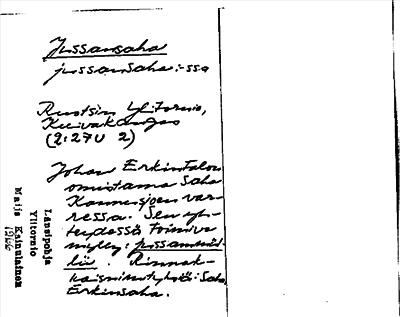 Jussansaha
jussansaha:-ssa
Ruotsin Ylitornio,
Kuivakangas
(2:27U 2)
Johan Erkintalon
omistama saha
Kannusjoen var-
ressa. Sen yh-
teydessä toimiva
mylly: jussanmyl-
ly. Rinnak-
kaisnimityksiä: Saha,
Erkinsaha.
Länsipohja
Ylitornio
Maija Kainulainen
1966